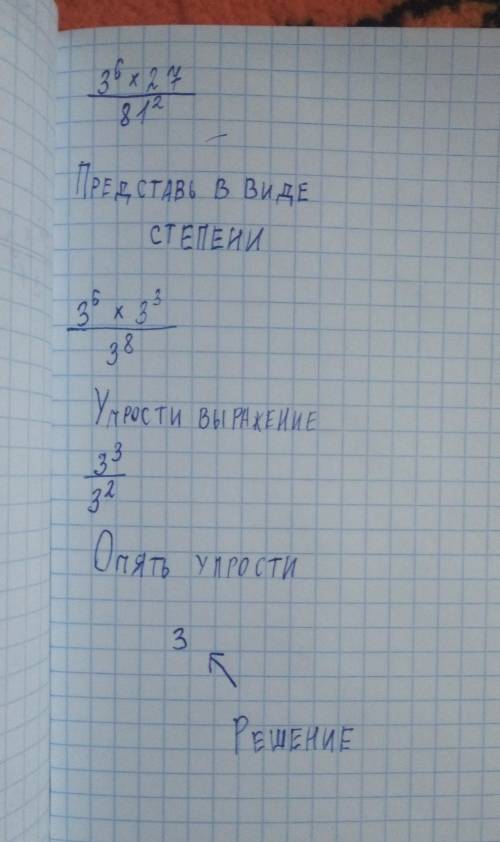 3⁶ × 27
81²
Представь в виде
степени
3⁶ × 3³
3⁸
Упрости выражение
3³
3²
Опять упрости
3
Решение